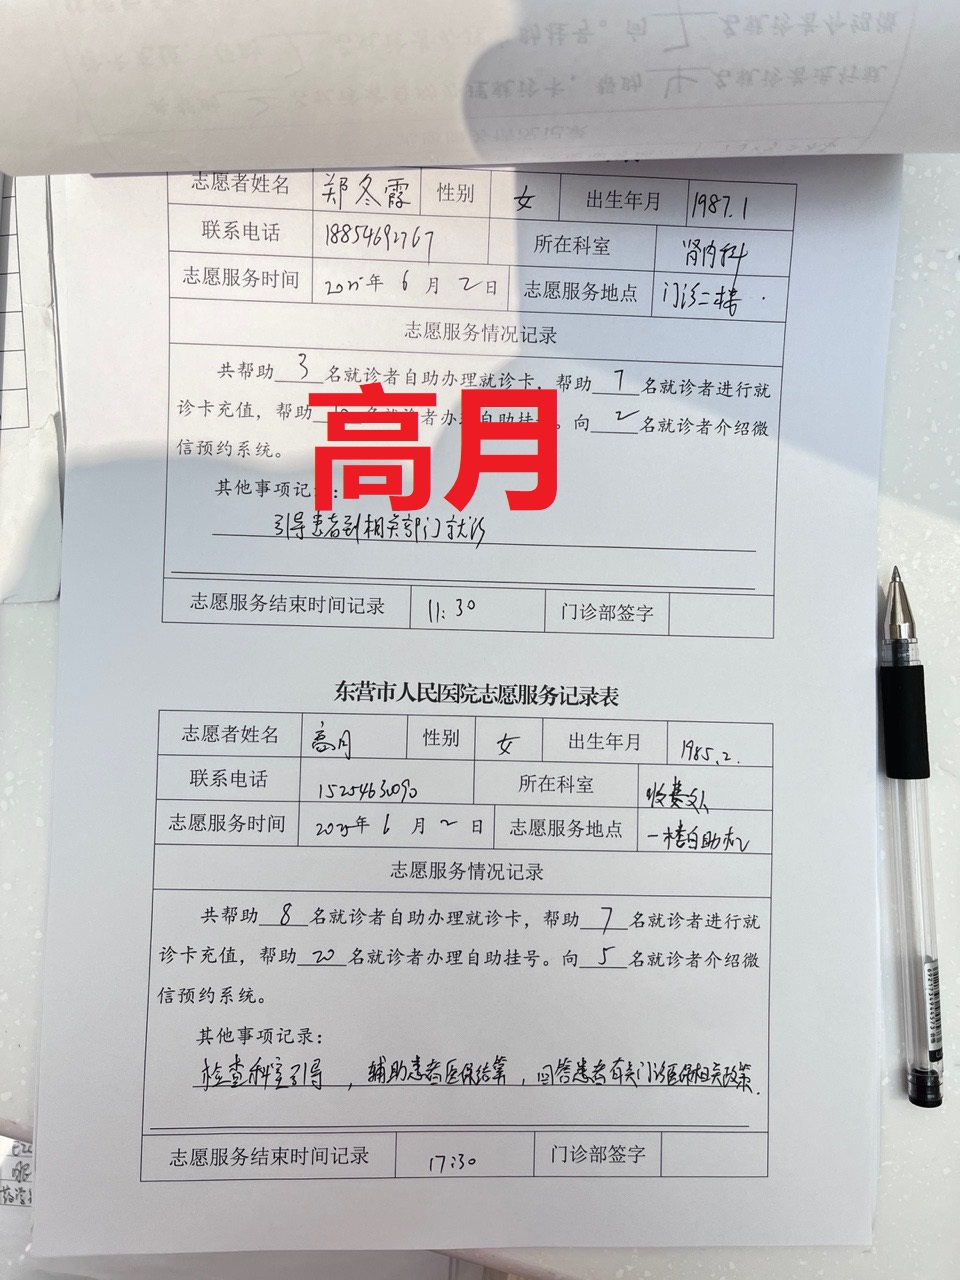 志愿者姓名 郑冬霞 性别 女 出生年月 1987.1
联系电话 18854692767 所在科室 肾内科
志愿服务时间 2025年 6 月 2 日 志愿服务地点 门诊二楼
志愿服务情况记录
共帮助 3 名就诊者自助办理就诊卡，帮助 7 名就诊者进行就
诊卡充值，帮助 名就诊者办理自助挂号。向 2 名就诊者介绍微
信预约系统。
高月
其他事项记录：
引导患者到相关部门就诊
志愿服务结束时间记录 11:30 门诊部签字
东营市人民医院志愿服务记录表
志愿者姓名 高月 性别 女 出生年月 1985.2.
联系电话 15254630090 所在科室 收费处
志愿服务时间 2025年 6 月 2 日 志愿服务地点 一楼自助机
志愿服务情况记录
共帮助 8 名就诊者自助办理就诊卡，帮助 7 名就诊者进行就
诊卡充值，帮助 20 名就诊者办理自助挂号。向 5 名就诊者介绍微
信预约系统。
其他事项记录：
检查科室引导，辅助患者医保结算，回答患者有关门诊医保相关政策.
志愿服务结束时间记录 17:30 门诊部签字
6927734944573